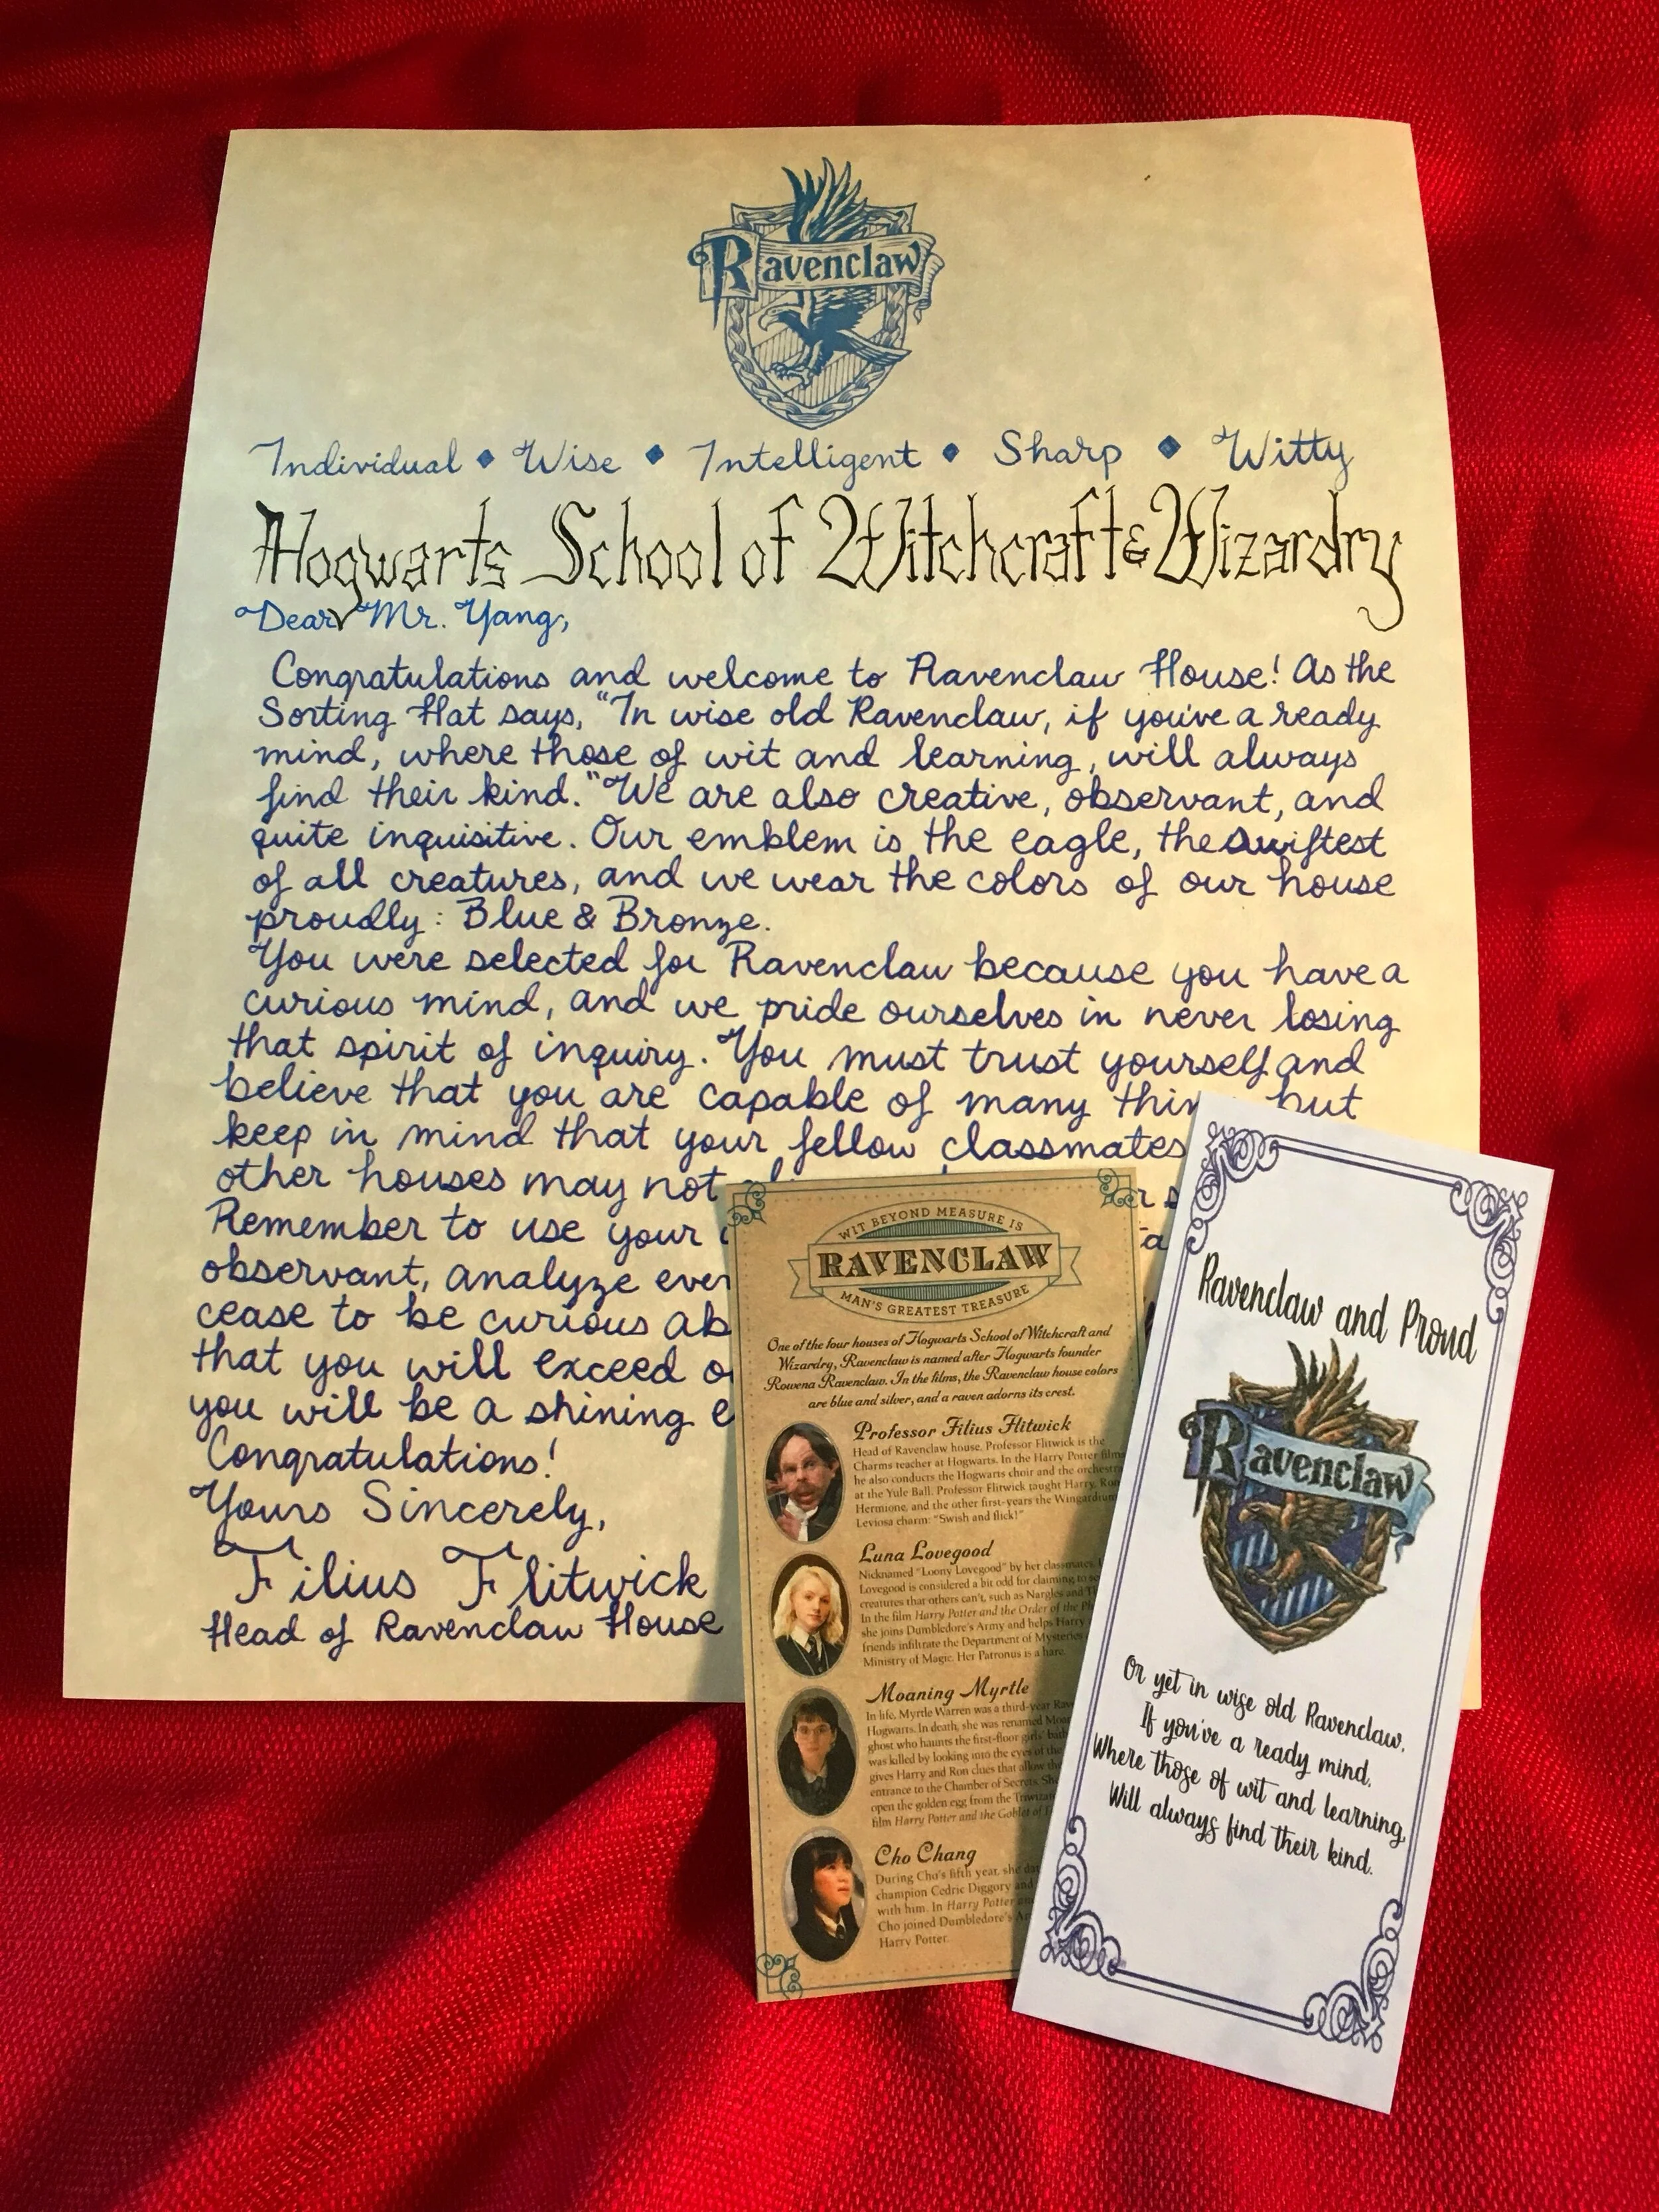 Ravenclaw
Individual ◆ Wise ◆ Intelligent ◆ Sharp ◆ Witty
Hogwarts School of Witchcraft & Wizardry
Dear Mr. Yang,
Congratulations and welcome to Ravenclaw House! As the
Sorting Hat says, "In wise old Ravenclaw, if you've a ready
mind, where those of wit and learning, will always
find their kind." We are also creative, observant, and
quite inquisitive. Our emblem is the eagle, the swiftest
of all creatures, and we wear the colors of our house
proudly: Blue & Bronze.
You were selected for Ravenclaw because you have a
curious mind, and we pride ourselves in never losing
that spirit of inquiry. You must trust yourself and
believe that you are capable of many but
keep in mind that your fellow classmates
other houses may not
Remember to use your
observant, analyze
cease to be curious
that you will exceed
you will be a shining
Congratulations!
Yours Sincerely,
Filius Flitwick
Head of Ravenclaw House
WIT BEYOND MEASURE IS
RAVENCLAW
MAN'S GREATEST TREASURE
One of the four houses of Hogwarts School of Witchcraft and
Wizardry, Ravenclaw is named after Hogwarts founder
Rowena Ravenclaw. In the films, the Ravenclaw house colors
are blue and silver, and a raven adorns its crest.
Professor Filius Flitwick
Head of Ravenclaw house, Professor Flitwick is the
Charms teacher at Hogwarts. In the Harry Potter films
he also conducts the Hogwarts choir and the orchestra
at the Yule Ball. Professor Flitwick taught Harry, Ron
Hermione, and the other first-years the Wingardium
Leviosa charm: "Swish and flick!"
Luna Lovegood
Nicknamed "Loony Lovegood" by her classmates,
Lovegood is considered a bit odd for claiming to
creatures that others can't, such as Nargles and
In the film Harry Potter and the Order of the
she joins Dumbledore's Army and helps Harry
friends infiltrate the Department of Mysteries
Ministry of Magic. Her Patronus is a hare.
Moaning Myrtle
In life, Myrtle Warren was a third-year
Hogwarts. In death, she was renamed
ghost who haunts the first-floor girls'
was killed by looking into the eyes of the
gives Harry and Ron clues that allow
entrance to the Chamber of Secrets.
open the golden egg from the
film Harry Potter and the Goblet of
Cho Chang
During Cho's fifth year, she
champion Cedric Diggory and
with him. In Harry Potter
Cho joined Dumbledore's
Harry Potter.
Ravenclaw and Proud
Ravenclaw
Or yet in wise old Ravenclaw,
If you've a ready mind,
Where those of wit and learning,
Will always find their kind.